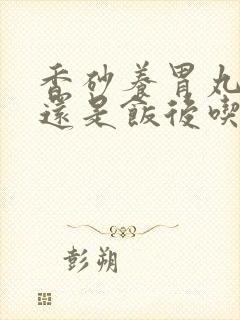 香砂養胃丸
還是飯後喫
彭朔